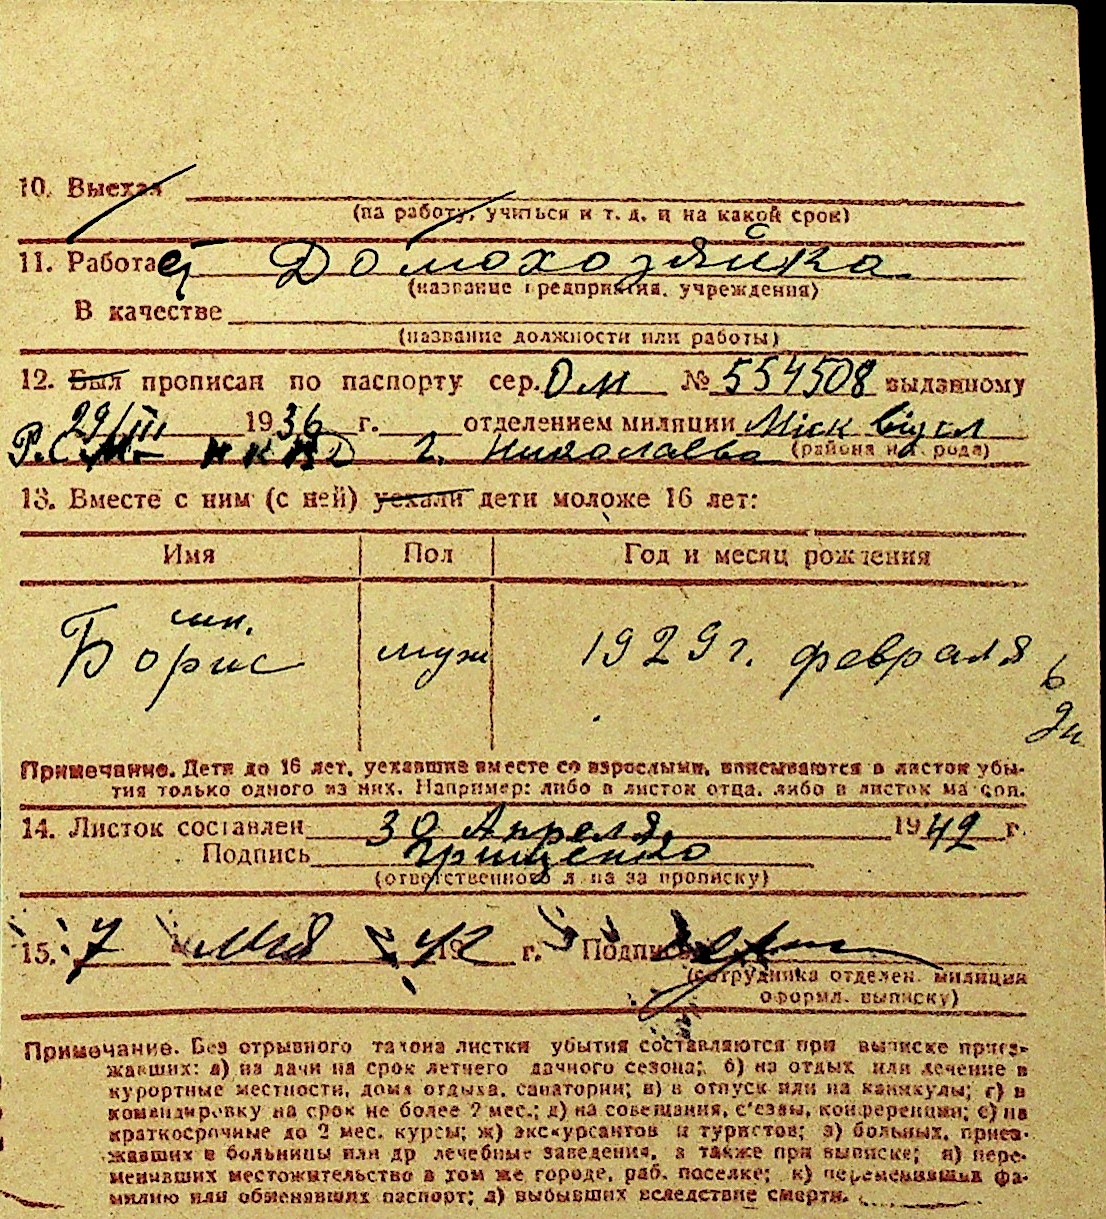 10. Выехал
(на работу, учиться и т. д. и на какой срок)
11. Работает Домохозяйка
(название предприятия, учреждения)
В качестве
(название должности или работы)
12. Был прописан по паспорту сер. ОМ № 554508 выданному
29/III 1936 г. отделением милиции Миск
Р.С.М. НКВД г. Николаева (района и города)
13. Вместе с ним (с ней) уехали дети моложе 16 лет:
Имя Пол Год и месяц рождения
Борис муж 1929 г. февраля 6
дн
Примечание. Дети до 16 лет, уехавшие вместе со взрослыми, вписываются в листок убы-
тия только одного из них. Например: либо в листок отца, либо в листок матери.
14. Листок составлен 30 Апреля 1942 г.
Подпись Грищенко
(ответственного л на за прописку)
15. 7 мая 1942 г. Подпись
(сотрудника отделен. милиции
оформл. выписку)
Примечание. Без отрывного талона листки убытия составляются при выписке приез-
жавших: а) на дачи на срок летнего дачного сезона; б) на отдых или лечение в
курортные местности, дома отдыха, санатории; в) в отпуск или на каникулы; г) в
командировку на срок не более 2 мес.; д) на совещания, с'езды, конференции; е) на
краткосрочные до 2 мес. курсы; ж) экскурсантов и туристов; з) больных, приез-
жавших в больницы или др лечебные заведения, а также при выписке; и) пере-
менивших местожительство в том же городе, раб. поселке; к) переменивших фа-
милию или обменявших паспорт; л) выбывших вследствие смерти.